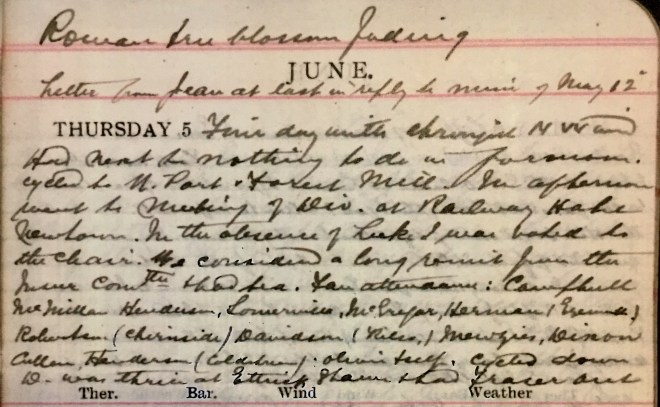 Rowan tree blossom fading
JUNE.
Letter from Jean at last in reply to mine of May 12
THURSDAY 5 Fine day with strongish N W wind
Had next to nothing to do in forenoon.
cycled to N. Port & Forest Mill. In afternoon
went to Meeting of Div. at Railway Hotel
Newtown. In the absence of Luke I was voted to
the chair. We considered a long remit from the
Comttee & had tea. In attendance: Campbell
McMillan Henderson, Somerville, McGregor, Herman
Robertson (Chirnside) Davidson Menzies, Dixon
Cullen, Henderson (Coldstream): self. cycled down
D. was there at Ettrick & had Fraser out
Ther. Bar. Wind Weather